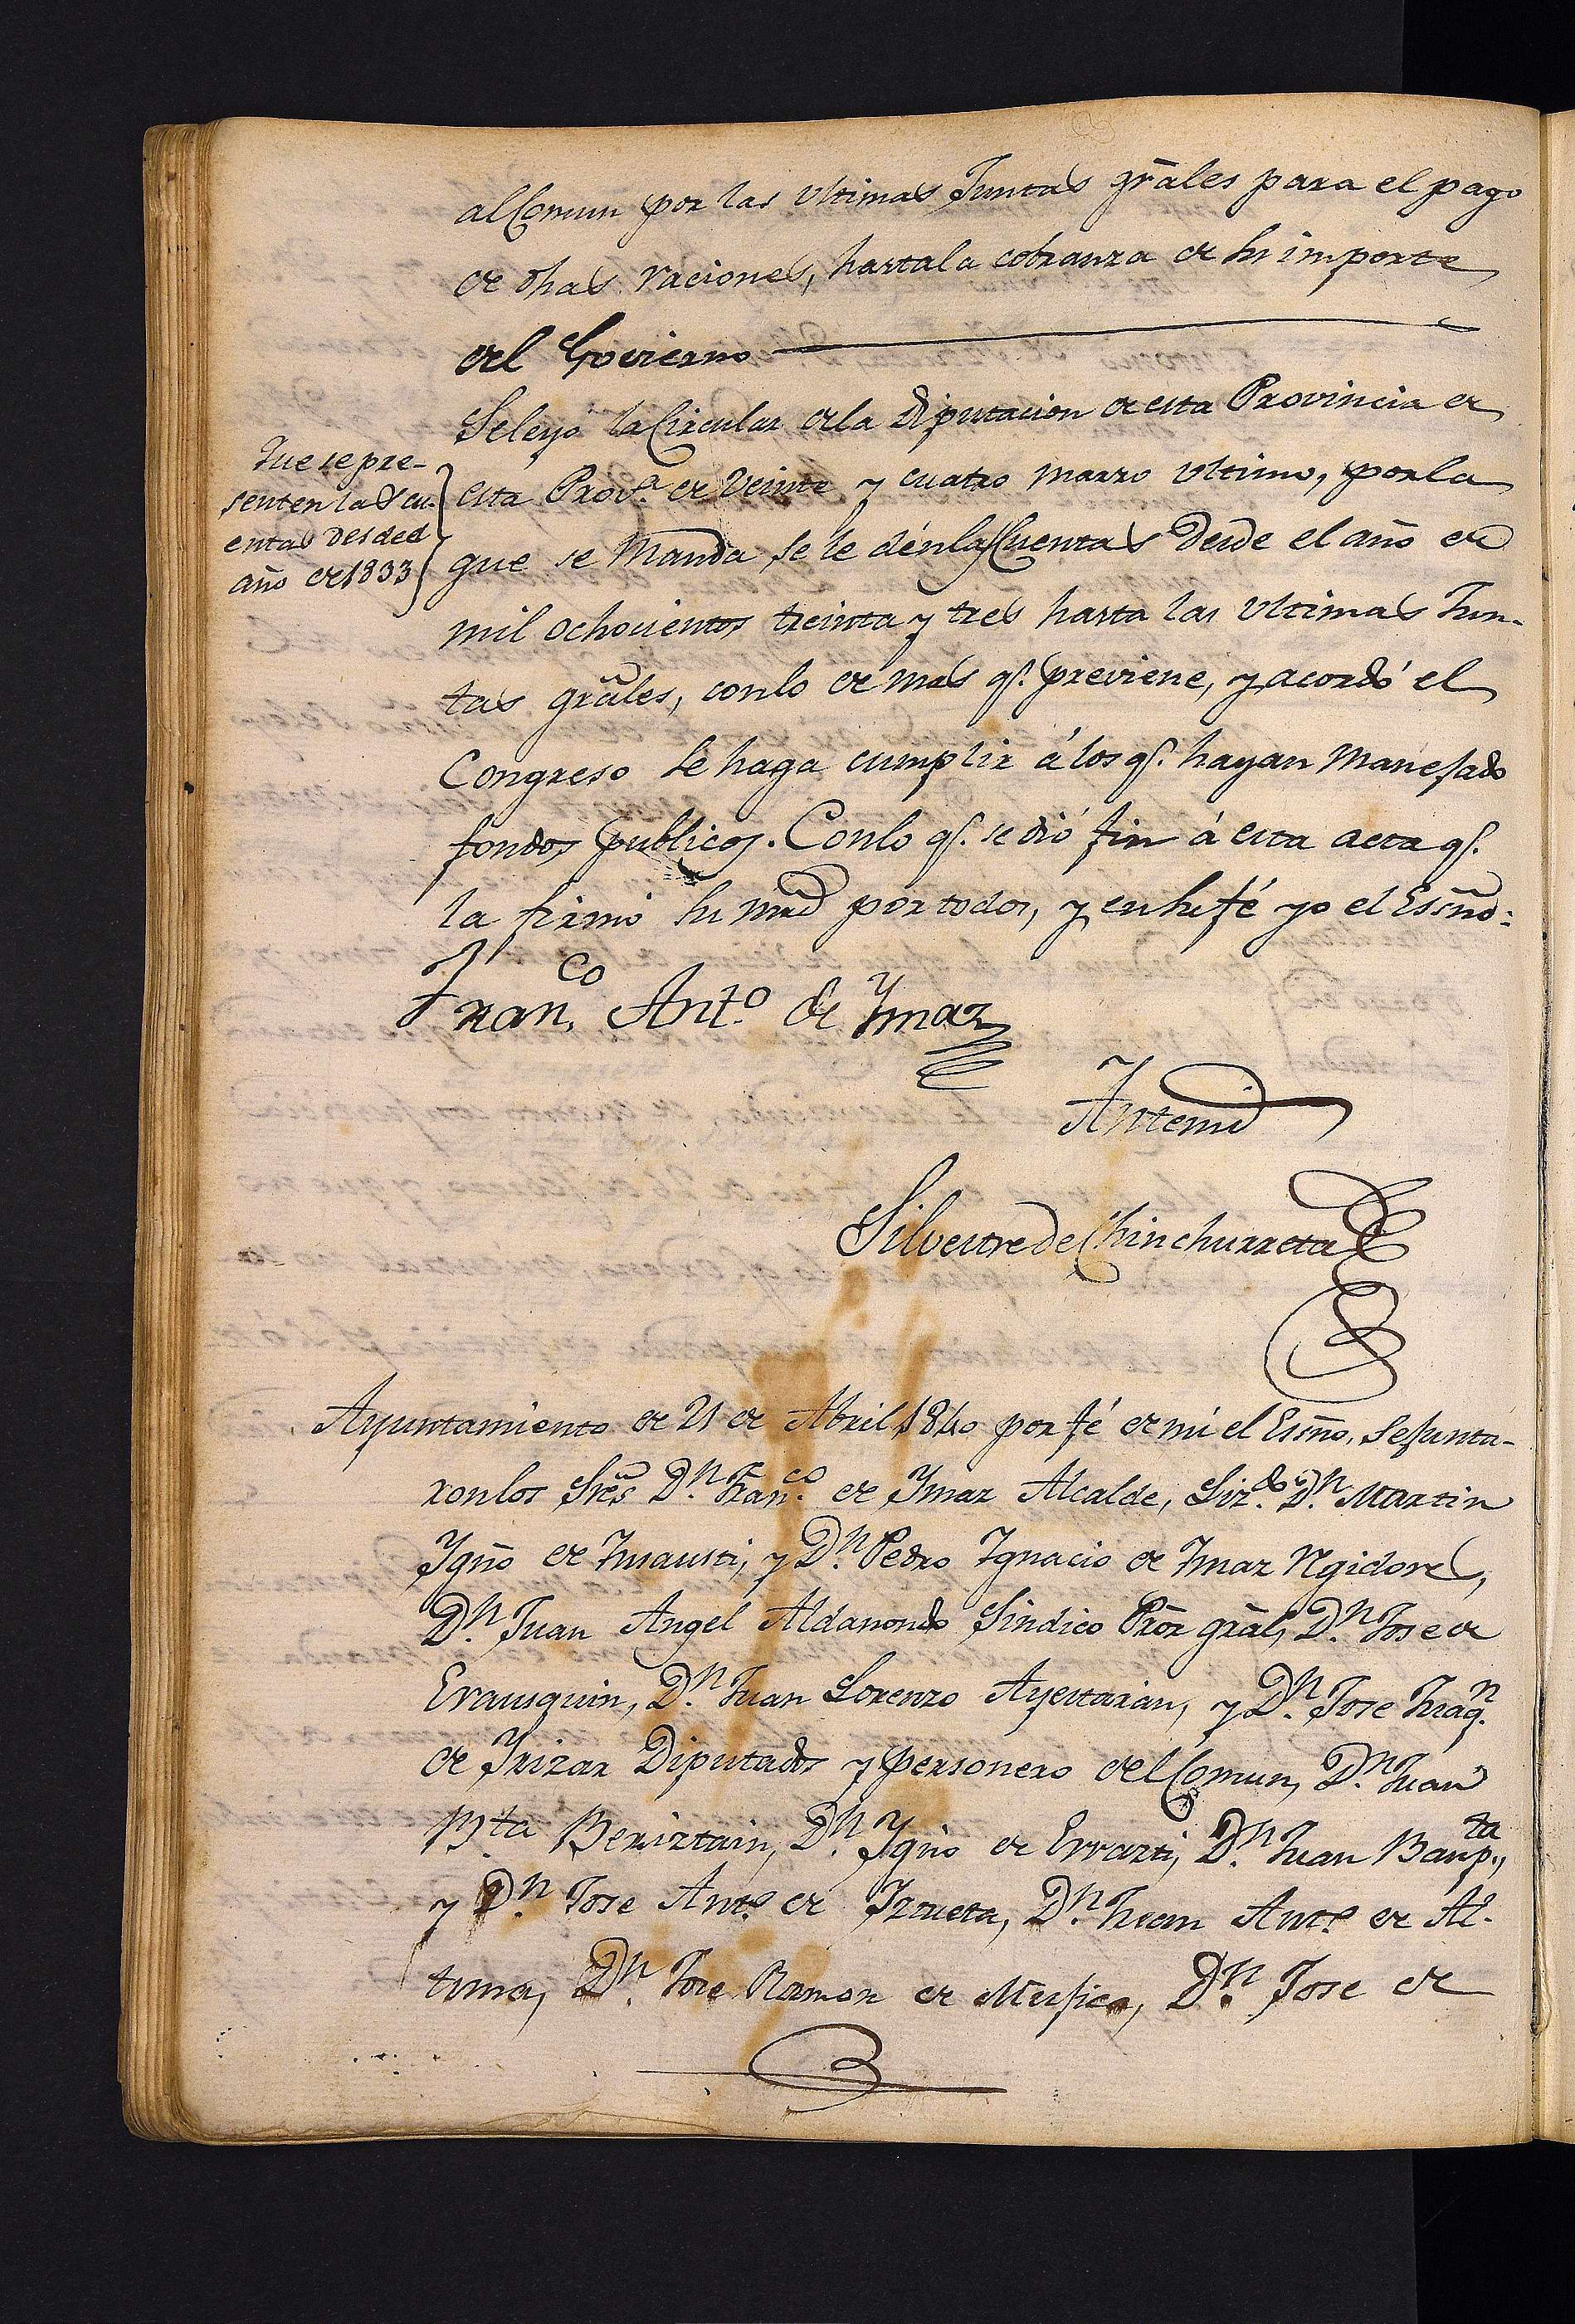 al Comun por las ultimas Juntas grāles para el pago
de dhas raciones, hasta la cobranza de su importe
del Govierno
Se leyó la Circular de la Diputacion de esta Provincia de
Que se pre-
senten las cu-
entas desde el
año de 1833
esta Prov.ª de veinte y cuatro marzo ultimo, por la
que se manda se le dén las Cuentas desde el año de
mil ochocientos treinta y tres hasta las ultimas Jun-
tas grāles, con lo de mas q.e previene, y acordó el
Congreso se haga cumplir á los q.e hayan manejado
fondos publicos. Con lo q.e se dió fin á esta acta q.e
la firmó su mrd por todos, y en su fé yo el Essño:
Fran.co Ant.o de Ymaz
Antemi
Silvestre de Chinchurreta
Ayuntamiento de 21 de Abril 1840 por fé de mi el Essño. se junta-
ron los Sres D.n Fran.co de Ymaz Alcalde, Liz.do D.n Martin
Ygño de Insausti, y D.n Pedro Ignacio de Imaz Regidores,
D.n Juan Angel Aldanondo Sindico Prõr grāl, D.n Jose de
Erausquin, D.n Juan Lorenzo Ayestaran, y D.n Jose Juaq.n
de Yrizar Diputados y personero del Comun, D.n Juan
B.ta Beriztain, D.n Ygño de Errazti, D.n Juan Baup.ta,
y D.n Jose Ant.o de Iztueta, D.n Juan Ant.o de Al-
tuna, D.n Jose Ramon de Mujica, D.n Jose de